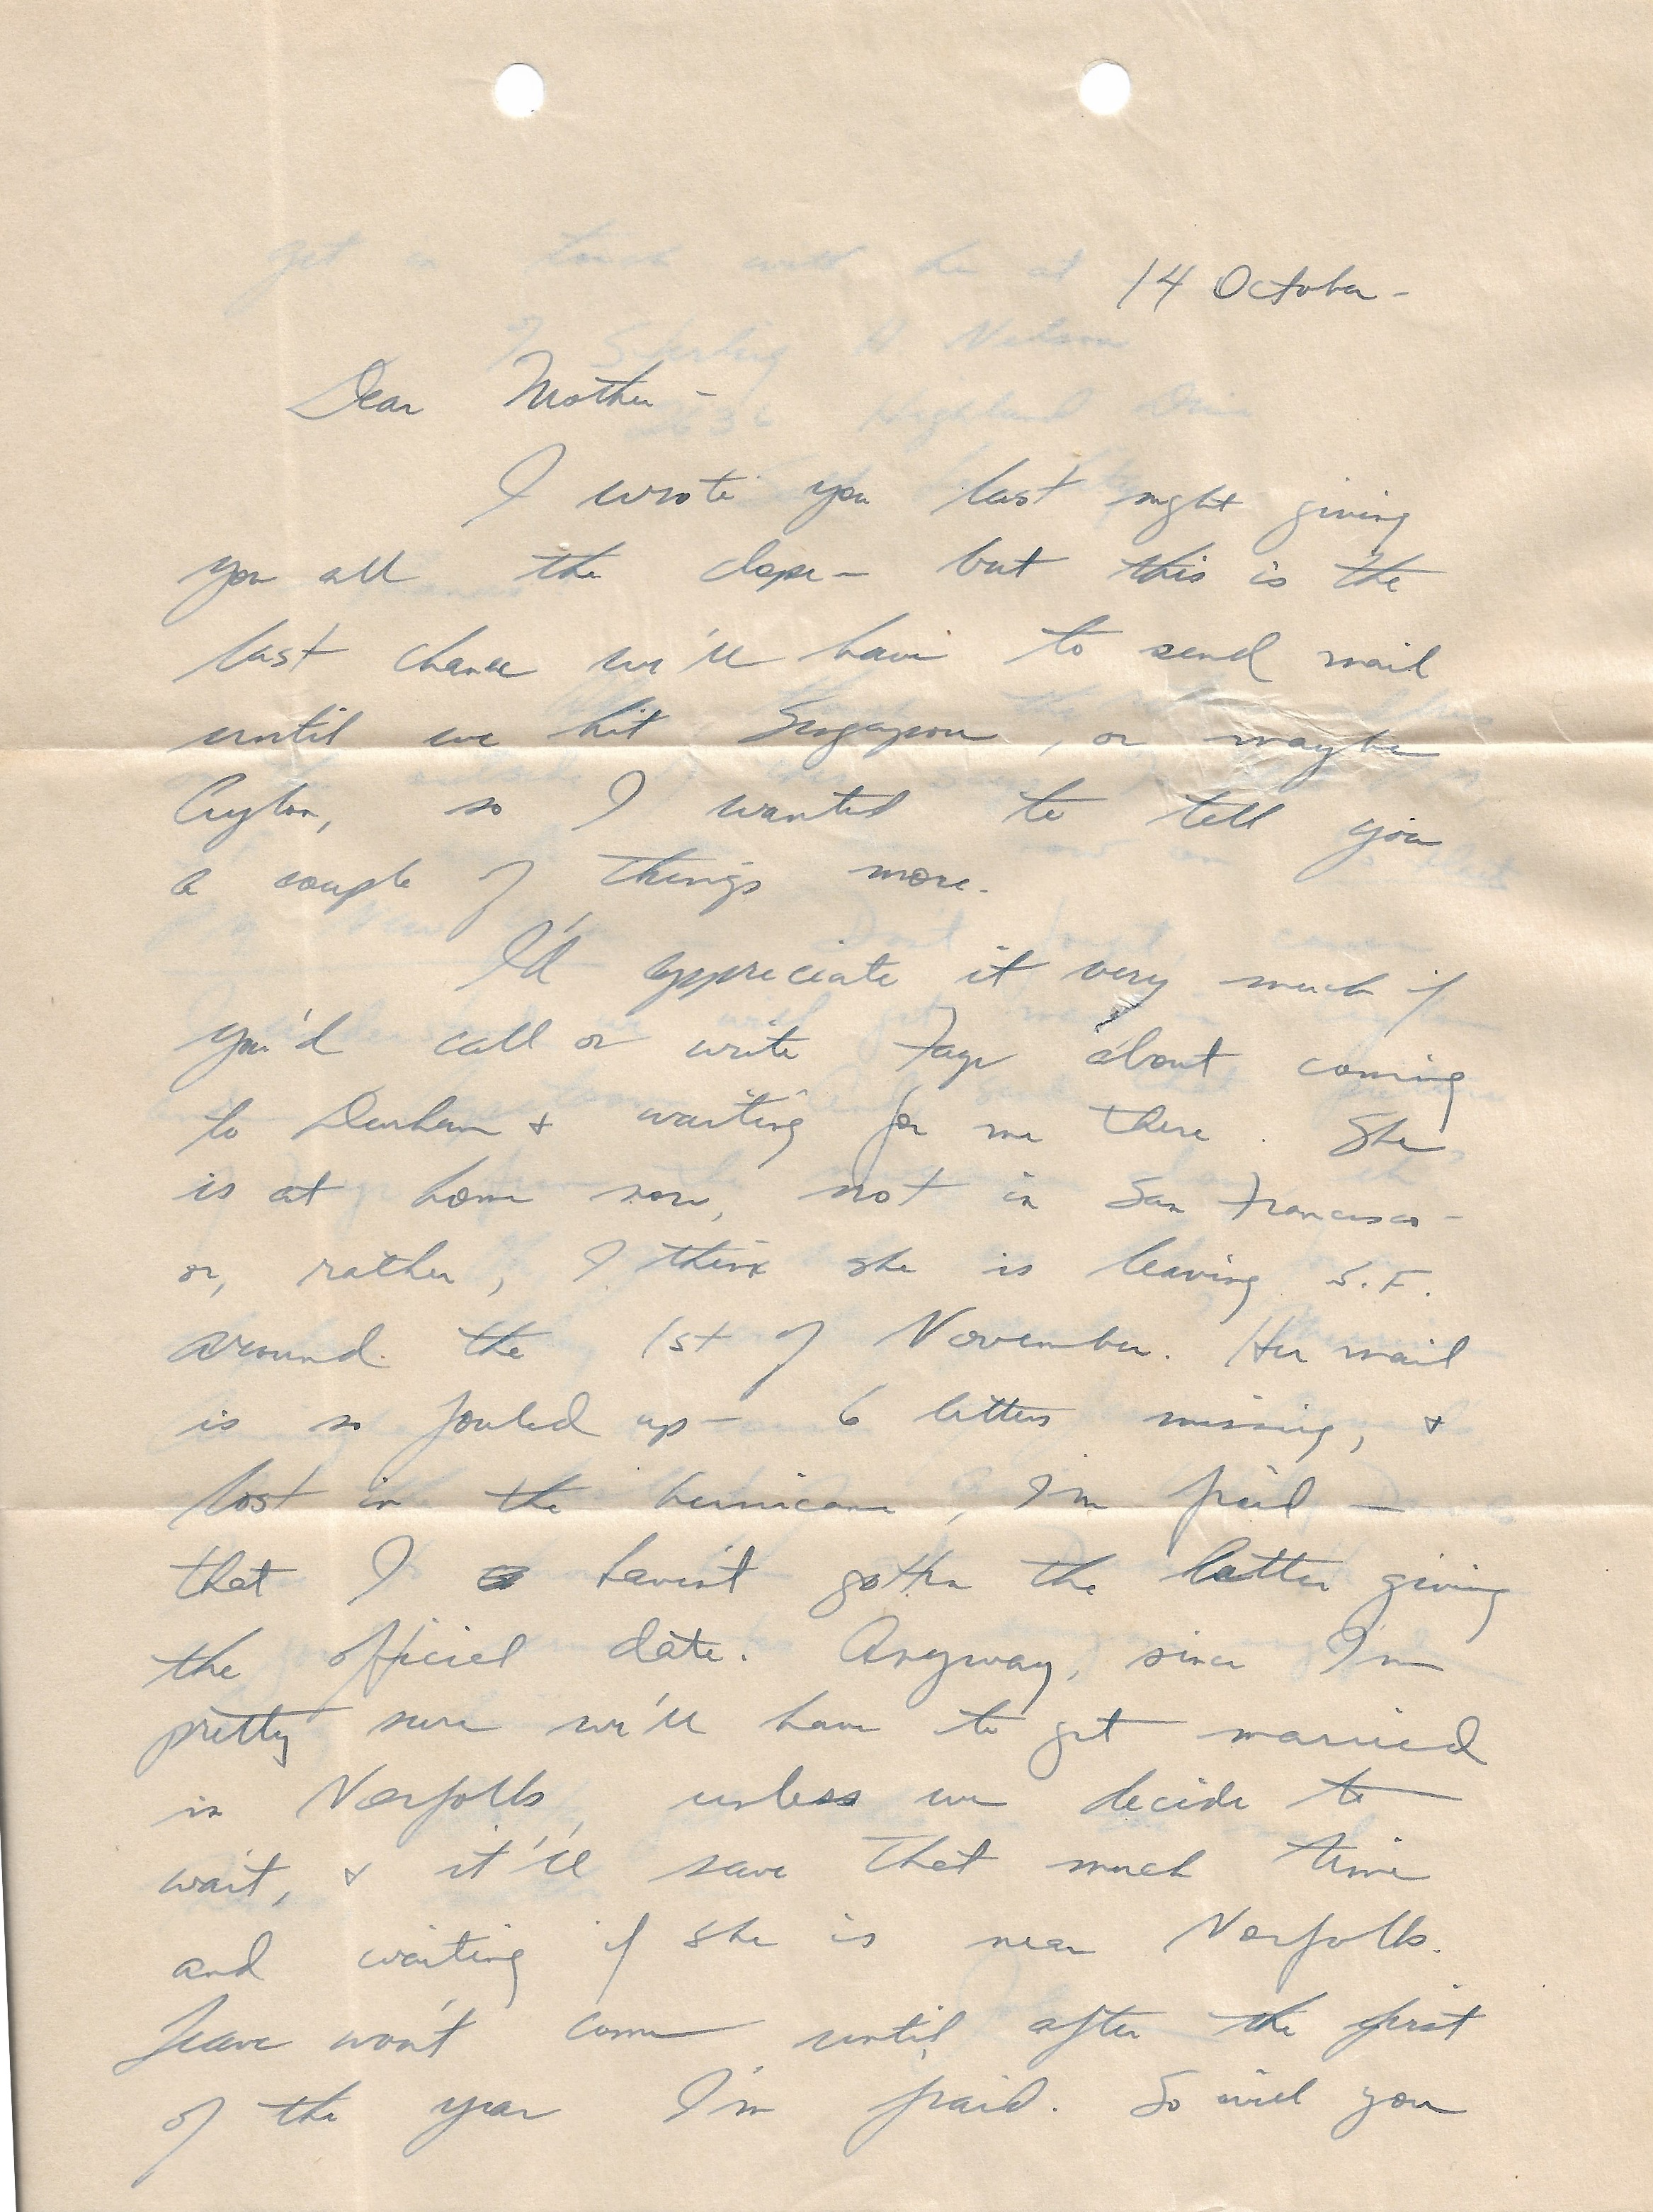 14 October -
Dear Mother -
I wrote you last night giving
you all the dope - but this is the
last chance we'll have to send mail
until we hit Singapore, or maybe
Ceylon, so I wanted to tell you
a couple of things more.
I'd appreciate it very much if
you'd call or write Faye about coming
to Durham & waiting for me there. She
is at home now, not in San Francisco -
or, rather, I think she is leaving S.F.
around the 1st of November. Her mail
is so fouled up - 6 letters missing, &
lost in the hurricane, I'm 'fraid -
that I haven't gotten the letter giving
the official date. Anyway, since I'm
pretty sure we'll have to get married
in Norfolk, unless we decide to
wait, & it'll save that much time
and waiting if she is near Norfolk.
Leave won't come until after the first
of the year I'm 'fraid. So will you